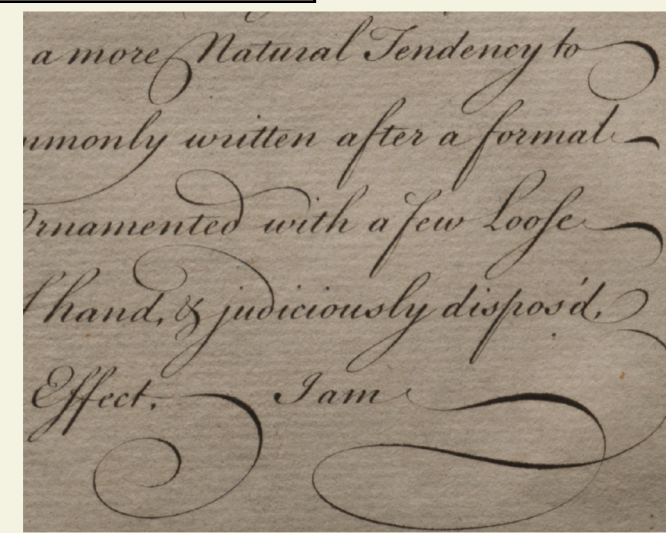 a more Natural Tendency to
mmonly written after a formal
Ornamented with a few Loose
hand, & judiciously dispos'd,
Effect. I am